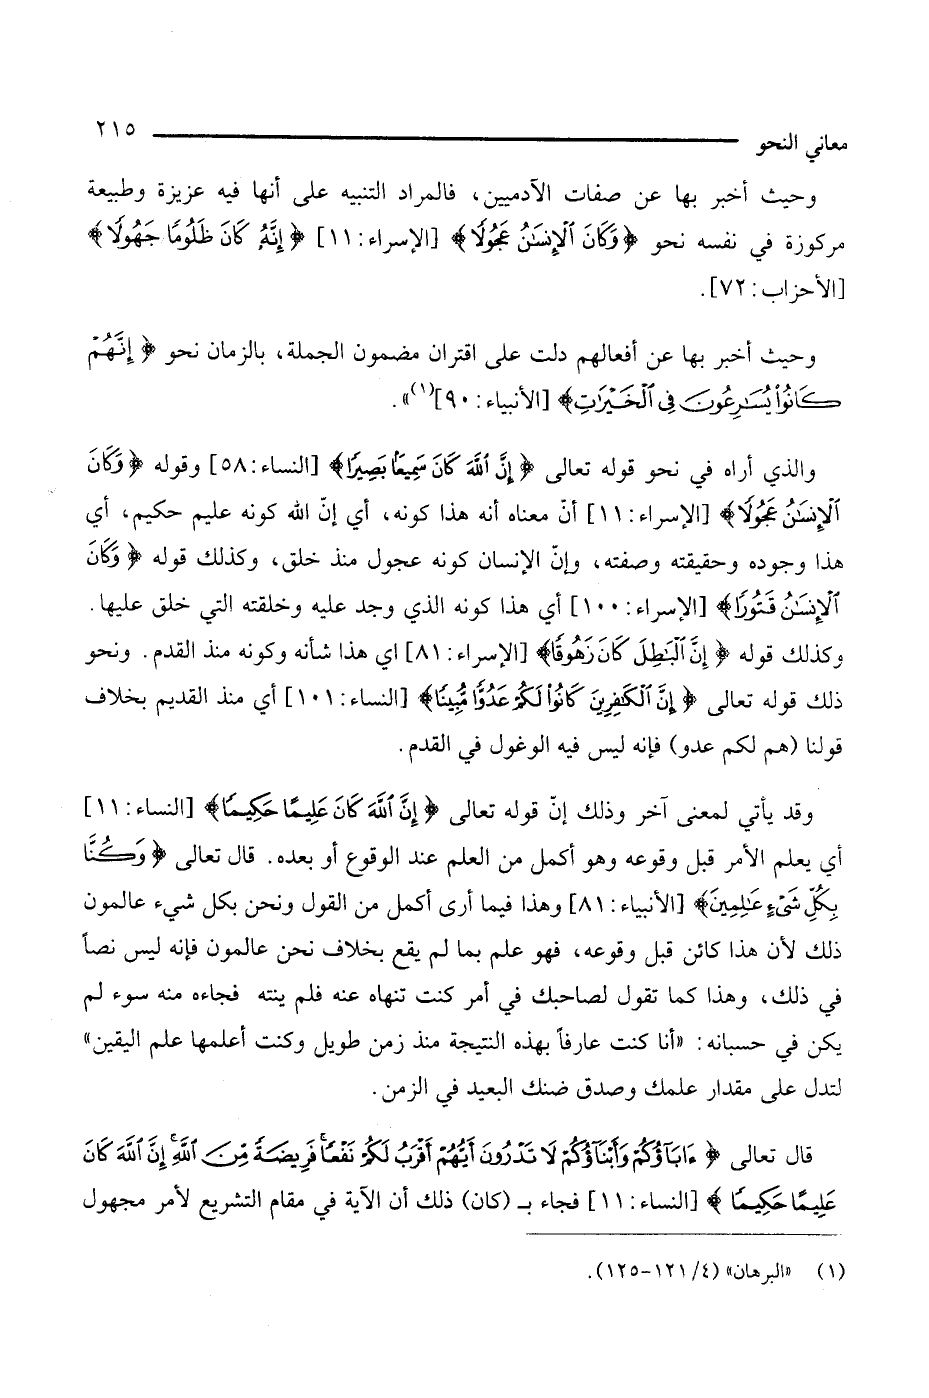 معاني النحو ٢١٥
وحيث أخبر بها عن صفات الآدميين، فالمراد التنبيه على أنها فيه عزيزة وطبيعة
مركوزة في نفسه نحو ﴿وَكَانَ ٱلْإِنسَٰنُ عَجُولًا﴾ [الإسراء: ١١] ﴿إِنَّهُۥ كَانَ ظَلُومًا جَهُولًا﴾
[الأحزاب: ٧٢].
وحيث أخبر بها عن أفعالهم دلت على اقتران مضمون الجملة، بالزمان نحو ﴿إِنَّهُمْ
كَانُوا۟ يُسَٰرِعُونَ فِى ٱلْخَيْرَٰتِ﴾ [الأنبياء: ٩٠](١)».
والذي أراه في نحو قوله تعالى ﴿إِنَّ ٱللَّهَ كَانَ سَمِيعًۢا بَصِيرًا﴾ [النساء: ٥٨] وقوله ﴿وَكَانَ
ٱلْإِنسَٰنُ عَجُولًا﴾ [الإسراء: ١١] أنّ معناه أنه هذا كونه، أي إنّ الله كونه عليم حكيم، أي
هذا وجوده وحقيقته وصفته، وإنّ الإنسان كونه عجول منذ خلق، وكذلك قوله ﴿وَكَانَ
ٱلْإِنسَٰنُ قَتُورًا﴾ [الإسراء: ١٠٠] أي هذا كونه الذي وجد عليه وخلقته التي خلق عليها.
وكذلك قوله ﴿إِنَّ ٱلْبَٰطِلَ كَانَ زَهُوقًا﴾ [الإسراء: ٨١] اي هذا شأنه وكونه منذ القدم. ونحو
ذلك قوله تعالى ﴿إِنَّ ٱلْكَٰفِرِينَ كَانُوا۟ لَكُمْ عَدُوًّا مُّبِينًا﴾ [النساء: ١٠١] أي منذ القديم بخلاف
قولنا (هم لكم عدو) فإنه ليس فيه الوغول في القدم.
وقد يأتي لمعنى آخر وذلك إنّ قوله تعالى ﴿إِنَّ ٱللَّهَ كَانَ عَلِيمًا حَكِيمًا﴾ [النساء: ١١]
أي يعلم الأمر قبل وقوعه وهو أكمل من العلم عند الوقوع أو بعده. قال تعالى ﴿وَكُنَّا
بِكُلِّ شَىْءٍ عَٰلِمِينَ﴾ [الأنبياء: ٨١] وهذا فيما أرى أكمل من القول ونحن بكل شيء عالمون
ذلك لأن هذا كائن قبل وقوعه، فهو علم بما لم يقع بخلاف نحن عالمون فإنه ليس نصاً
في ذلك، وهذا كما تقول لصاحبك في أمر كنت تنهاه عنه فلم ينته فجاءه منه سوء لم
يكن في حسبانه: «أنا كنت عارفاً بهذه النتيجة منذ زمن طويل وكنت أعلمها علم اليقين»
لتدل على مقدار علمك وصدق ضنك البعيد في الزمن.
قال تعالى ﴿ءَابَآؤُكُمْ وَأَبْنَآؤُكُمْ لَا تَدْرُونَ أَيُّهُمْ أَقْرَبُ لَكُمْ نَفْعًا ۚ فَرِيضَةً مِّنَ ٱللَّهِ ۗ إِنَّ ٱللَّهَ كَانَ
عَلِيمًا حَكِيمًا﴾ [النساء: ١١] فجاء بـ (كان) ذلك أن الآية في مقام التشريع لأمر مجهول
(١) «البرهان» (٤/ ١٢١-١٢٥).